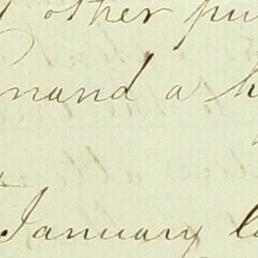 other pu
mand a h
January la